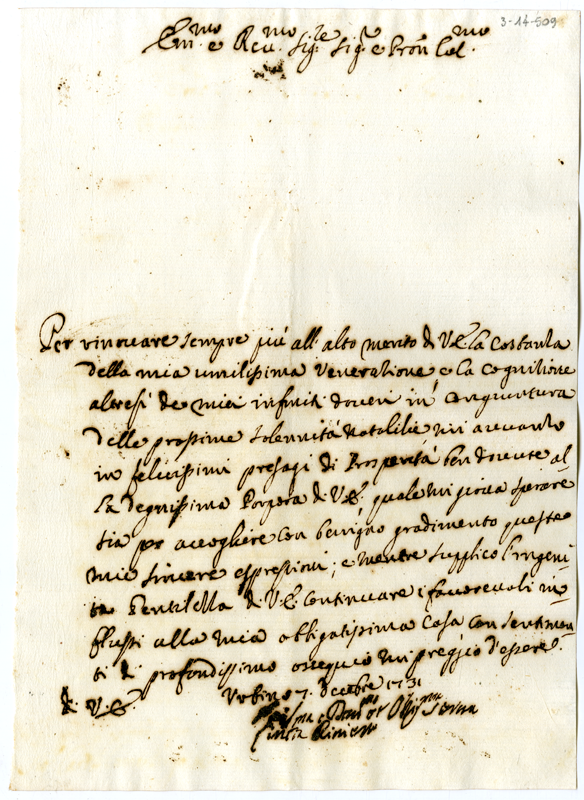 3-14-509
Em.mo e Rev.mo Sig.re Sig.r e Pron Col.mo
Per rinovare sempre più all'alto merito di V.E. la Costanza
della mia umilissima Veneratione e la cognitione
altresì de miei infiniti doveri in congiuntura
delle prossime solennità Natalitie mi avvanzo
in felicissimi presagi di Prosperità ben dovute al
la degnissima Porpora di V.E. quale mi giova sperare
sia per accogliere con benigno gradimento queste
mie sincere espressioni; e mentre supplico l'ingeni
ta Gentilezza di V.E. Continuare i favorevoli in
flussi alla mia obligatissima Casa con sentimen
ti di profondissimo ossequio mi preggio d'essere
di V.E.
Urbino 7. Decembre 1731
Obligma Serva